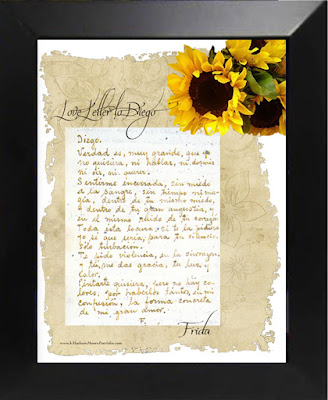 Love Letter to Diego
Diego.
Verdad es, muy grande, que yo
no quisiera, ni hablar, ni dormir
ni oir, ni querer.
Sentirme encerrada, sin miedo
a la sangre, sin tiempo ni ma-
gia, dentro de tu mismo miedo,
y dentro de tu gran angustia, y
en el mismo ruido de tu corazón.
Toda esta locura, si te la pidiera
yo sé que sería, para tu silencio,
sólo turbación.
Te pido violencia, en la sinrazón,
y tú, me das gracia, tu luz y
calor.
Pintarte quisiera, pero no hay co-
lores, por haberlos tantos, en mi
confusión, la forma concreta
de mi gran amor.
F.
Frida